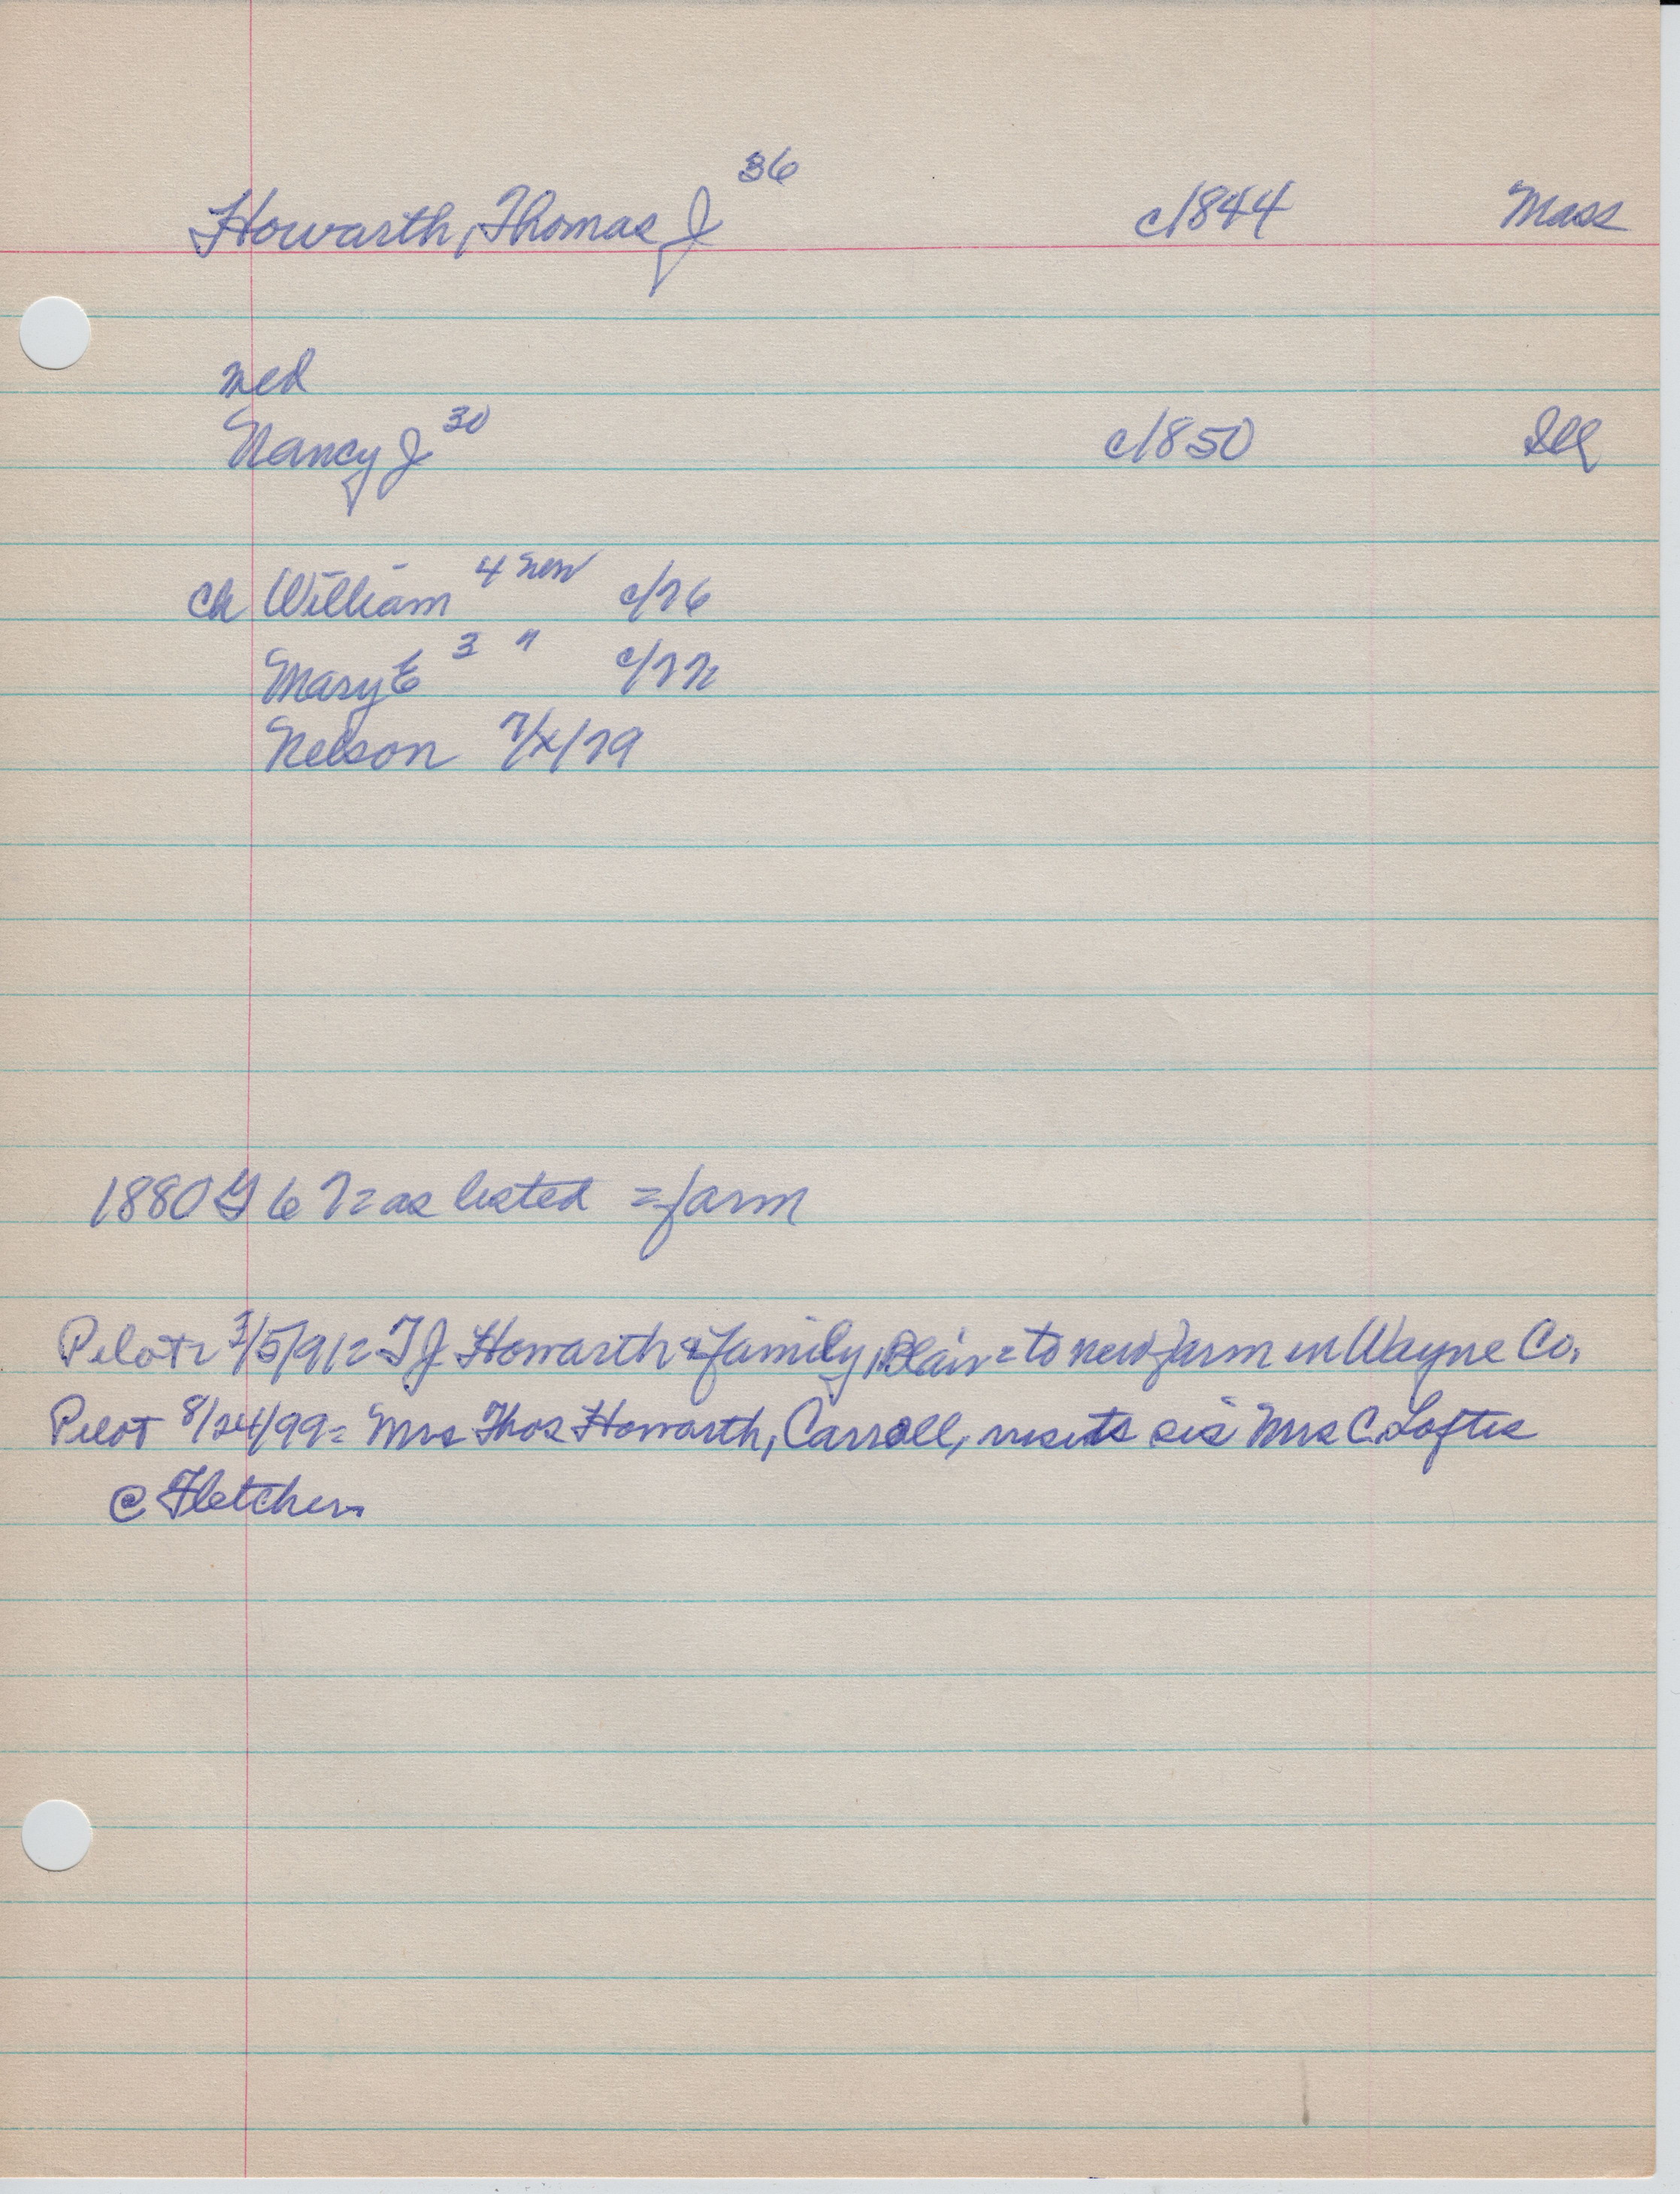 Howarth, Thomas J 36 c/844 Mass
med
Nancy J 30 c/850 Ill
ch William 4 c/76
Mary E 3 " c/77
Nelson 7/x/79
1880 G 67 = as listed = farm
Pilot = 3/5/91 = T J Howarth & family, Blair = to new farm in Wayne Co.
Pilot 8/24/99 = Mrs Thos Howarth, Carroll, visits sis Mrs C. Loftis
@ Fletcher.